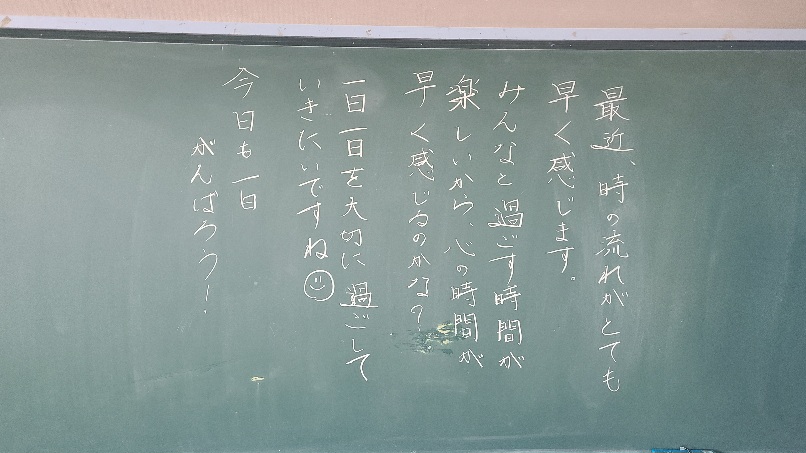 最近、時の流れがとても
早く感じます。
みんなと過ごす時間が
楽しいから、心の時間が
早く感じるのかな？
一日一日を大切に過ごして
いきたいですね
今日も一日
がんばろう！